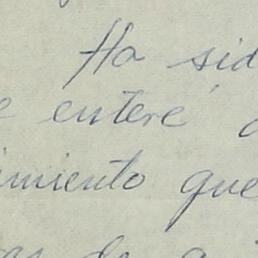 Ha sid
e enteré
imiento que
de